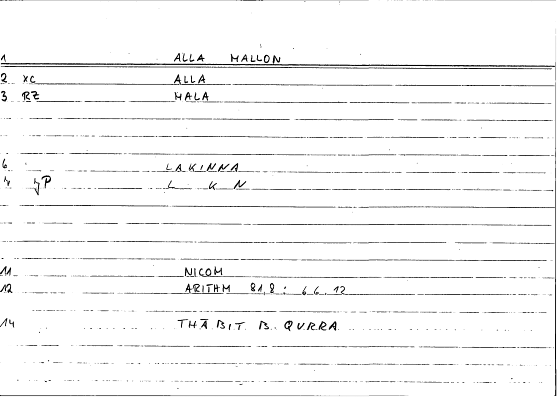 1 ALLA MALLON
2 XC ALLA
3 RZ MALA
6 LAKINNA
4 γP L K N
11 NICOM
12 ARITHM 81,8 : 66.12
14 THĀBIT B. QURRA